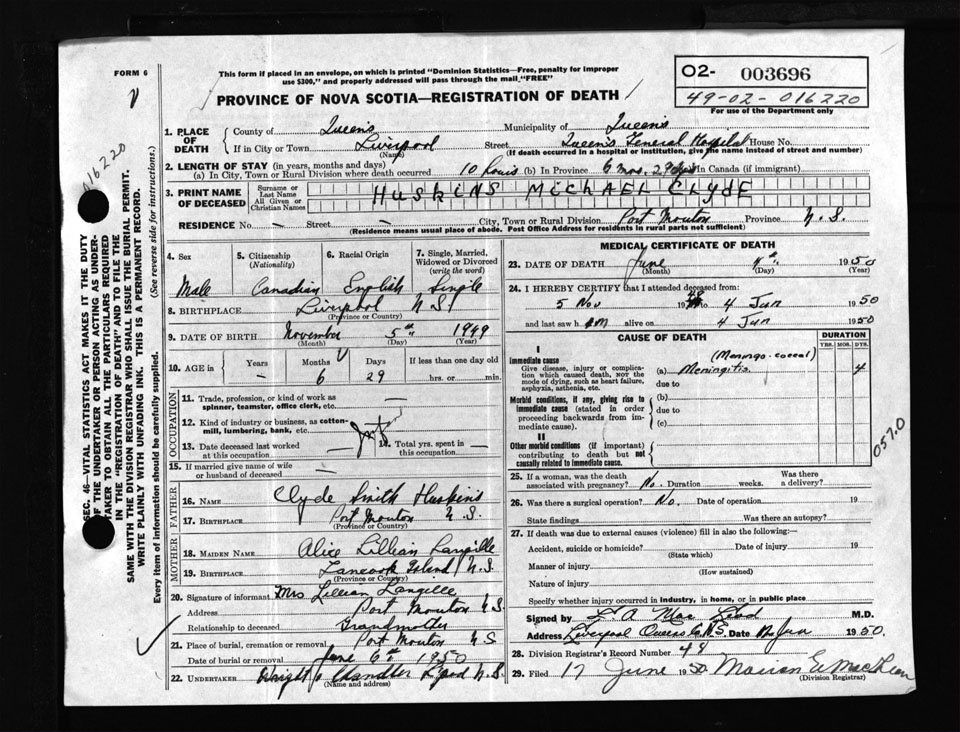 FORM 6
This form if placed in an envelope, on which is printed "Dominion Statistics—Free, penalty for improper
use $300," and properly addressed will pass through the mail "FREE"
O2- 003696
49-02-016220
For use of the Department only
PROVINCE OF NOVA SCOTIA—REGISTRATION OF DEATH
016220
SEC. 46—VITAL STATISTICS ACT MAKES IT THE DUTY
OF THE UNDERTAKER OR PERSON ACTING AS UNDER-
TAKER TO OBTAIN ALL THE PARTICULARS REQUIRED
IN THE "REGISTRATION OF DEATH" AND TO FILE THE
SAME WITH THE DIVISION REGISTRAR WHO SHALL ISSUE THE BURIAL PERMIT.
WRITE PLAINLY WITH UNFADING INK. THIS IS A PERMANENT RECORD.
Every item of information should be carefully supplied. (See reverse side for instructions.)
1. PLACE OF DEATH
County of Queen's Municipality of Queen's
If in City or Town Liverpool Street Queen's General Hospital House No.
(Name) (If death occurred in a hospital or institution, give the name instead of street and number)
2. LENGTH OF STAY (in years, months and days)
(a) In City, Town or Rural Division where death occurred 10 hours (b) In Province 6 mos. 29 dys In Canada (if immigrant)
3. PRINT NAME OF DECEASED
Surname or Last Name
All Given or Christian Names
HUSKINS MICHAEL CLYDE
RESIDENCE No. — Street — City, Town or Rural Division Port Mouton Province N.S.
(Residence means usual place of abode. Post Office Address for residents in rural parts not sufficient)
4. Sex 5. Citizenship (Nationality) 6. Racial Origin 7. Single, Married, Widowed or Divorced (write the word)
Male Canadian English Single
8. BIRTHPLACE Liverpool N.S.
(Province or Country)
9. DATE OF BIRTH November 5th 1949
(Month) (Day) (Year)
10. AGE in Years Months Days If less than one day old
— 6 29 hrs. or min.
OCCUPATION
11. Trade, profession, or kind of work as spinner, teamster, office clerk, etc. —
12. Kind of industry or business, as cotton-mill, lumbering, bank, etc.
13. Date deceased last worked at this occupation — 14. Total yrs. spent in this occupation —
15. If married give name of wife or husband of deceased —
FATHER
16. NAME Clyde Smith Huskins
17. BIRTHPLACE Port Mouton N.S.
(Province or Country)
MOTHER
18. MAIDEN NAME Alice Lillian Langille
19. BIRTHPLACE Tancook Island N.S.
(Province or Country)
20. Signature of informant Mrs Lillian Langille
Address Port Mouton N.S
Relationship to deceased Grandmother
21. Place of burial, cremation or removal Port Mouton N.S
Date of burial or removal June 6th 1950
22. UNDERTAKER Wright & Chandler N.S.
(Name and address)
MEDICAL CERTIFICATE OF DEATH
23. DATE OF DEATH June 4th 1950
(Month) (Day) (Year)
24. I HEREBY CERTIFY that I attended deceased from:
5 Nov 1949 to 4 Jun 1950
and last saw h im alive on 4 Jun 1950
CAUSE OF DEATH DURATION
YRS. MOS. DYS.
I
Immediate cause
Give disease, injury or complication which caused death, nor the mode of dying, such as heart failure, asphyxia, asthenia, etc.
(Meningo-coccal)
(a) Meningitis 4
due to
Morbid conditions, if any, giving rise to immediate cause (stated in order proceeding backwards from immediate cause).
(b)
due to
(c)
II
Other morbid conditions (if important) contributing to death but not causally related to immediate cause.
0570
25. If a woman, was the death associated with pregnancy? No. Duration weeks. Was there a delivery?
26. Was there a surgical operation? No. Date of operation 19
State findings Was there an autopsy?
27. If death was due to external causes (violence) fill in also the following:—
Accident, suicide or homicide? Date of injury 19
(State which)
Manner of injury
(How sustained)
Nature of injury
Specify whether injury occurred in industry, in home, or in public place
Signed by M.D.
Address Liverpool Queens Co N.S. Date Jun 1950.
28. Division Registrar's Record Number 48
29. Filed 17 June 1950 Marian E. MacLean
(Division Registrar)